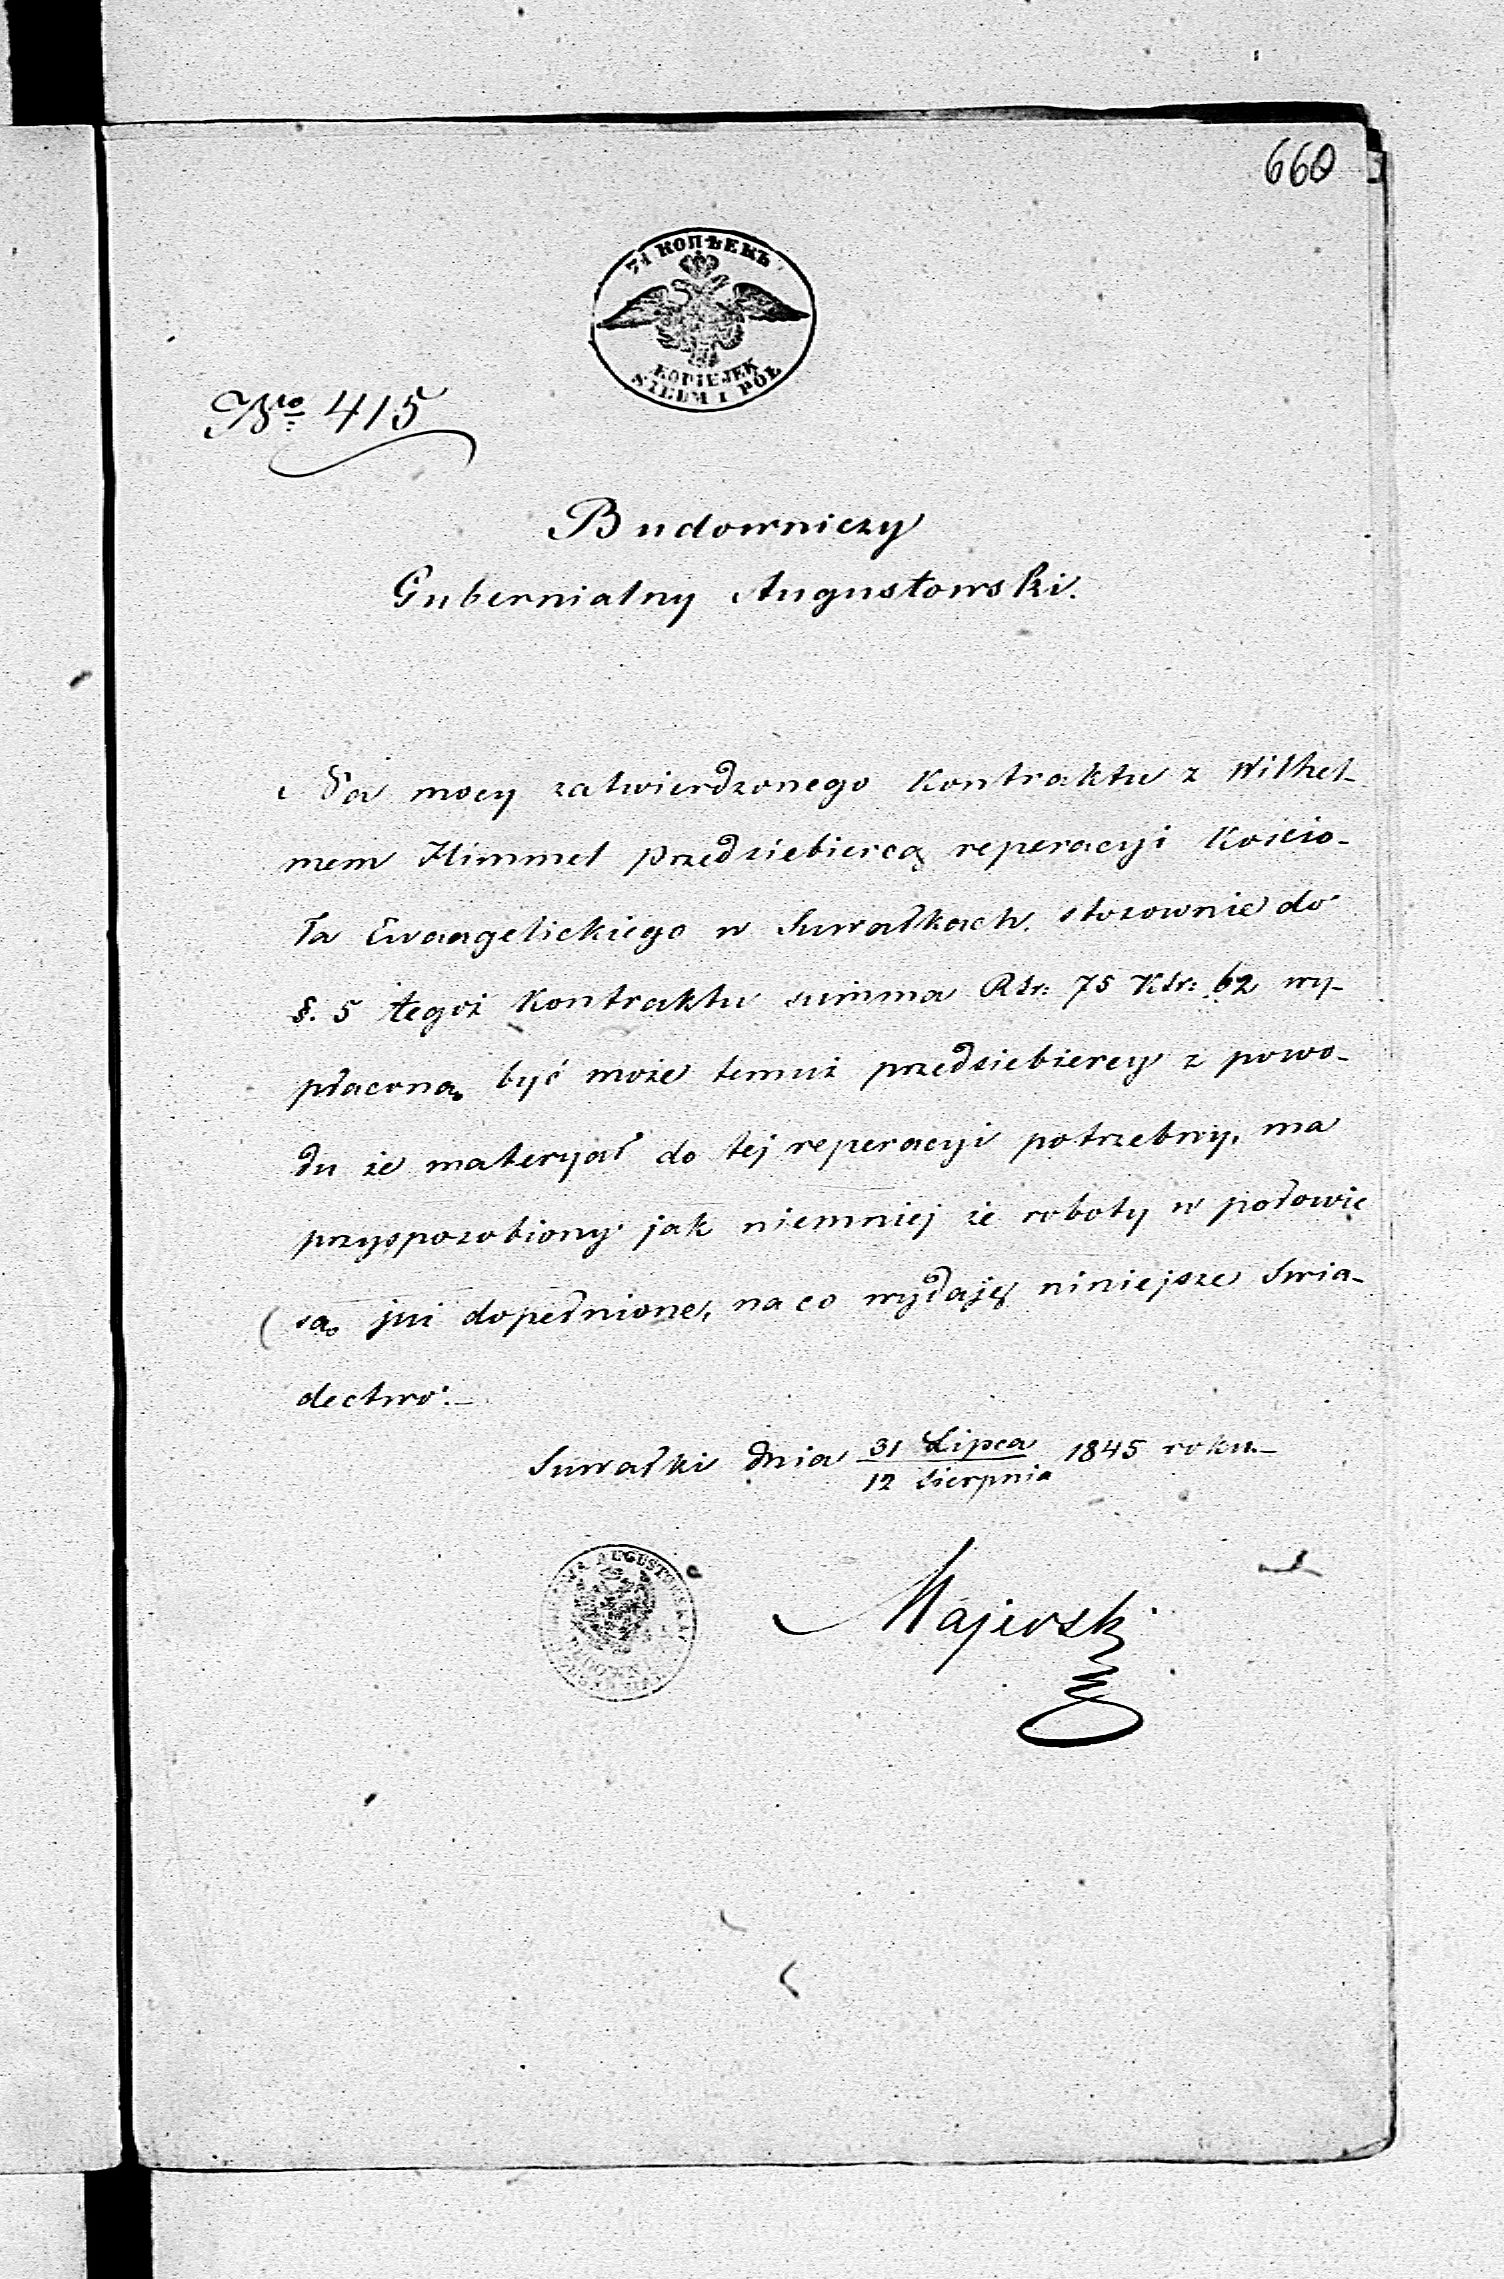 660
7½ КОПѢЕКЪ
KOPIEJEK
SIEDM I PÓŁ
Nro 415
Budowniczy
Gubernialny Augustowski.
Na mocy zatwierdzonego Kontraktu z Wilhel-
mem Himmel przedsiebiercą reperacyi Kościo-
ła Ewangelickiego w Suwałkach. stosownie do
§. 5 tegoż Kontraktu summa Rsr: 75 Ksr: 62 wy-
płaconą być może temuż przedsiebiercy z powo-
du że materyał do tej reperacyi potrzebny, ma
przysposobiony jak niemniej że roboty w połowie
są już dopełnione, na co wydaję niniejsze Swia-
dectwo.-
Suwałki dnia 31 Lipca 1845 roku-
12 Sierpnia
Majewski